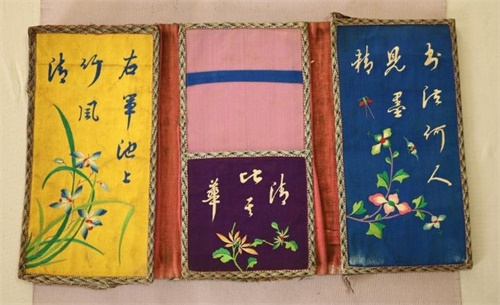 書法何人
見墨
精
清
比其
華
右軍池上
竹風
清